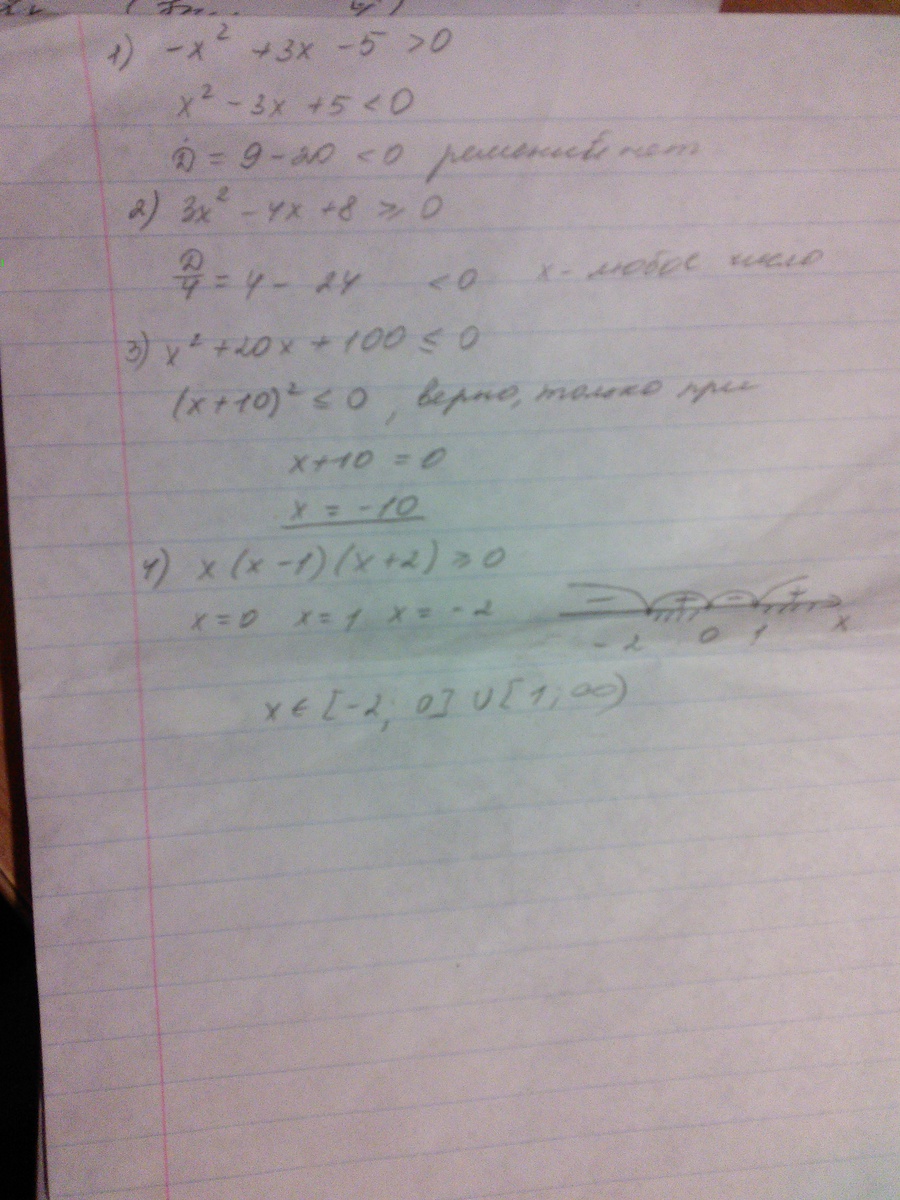 1) -x² + 3x - 5 > 0
x² - 3x + 5 < 0
D = 9 - 20 < 0 решений нет
2) 3x² - 4x + 8 ≥ 0
D/4 = 4 - 24 < 0 x - любое число
3) x² + 20x + 100 ≤ 0
(x+10)² ≤ 0, верно, только при
x + 10 = 0
x = -10
4) x(x-1)(x+2) ≥ 0
x = 0 x = 1 x = -2
- + - +
-2 0 1 x
x ∈ [-2; 0] ∪ [1; ∞)